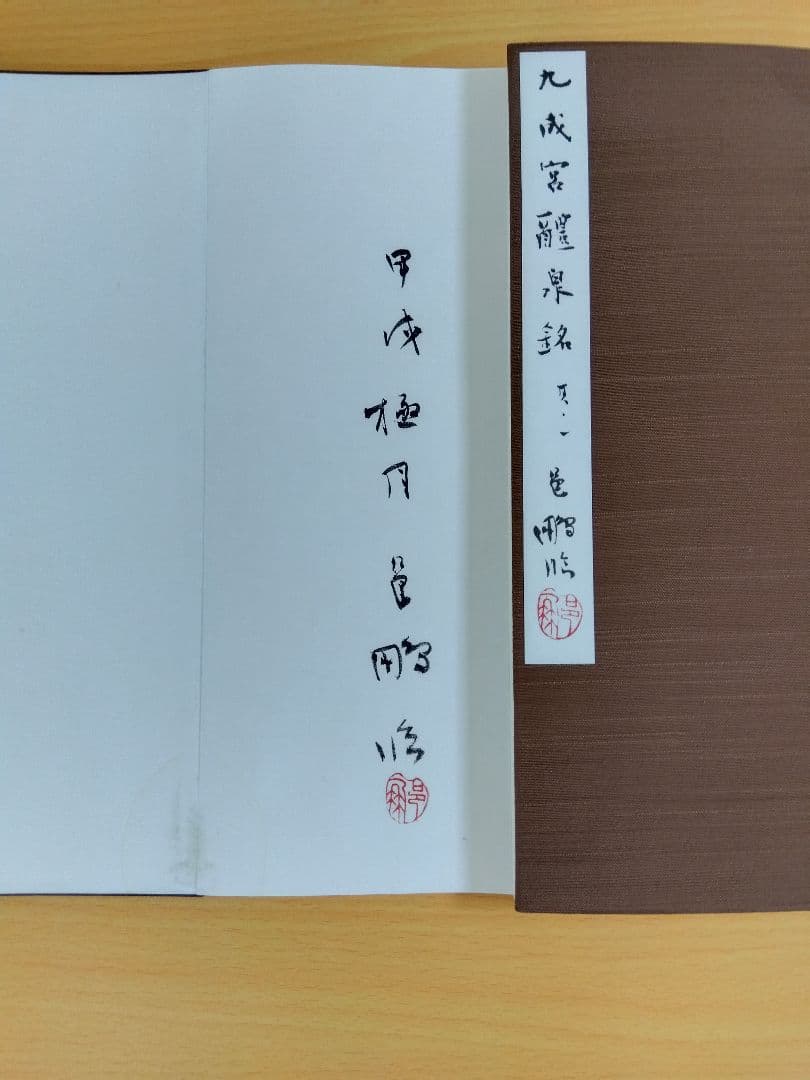 九成宮醴泉銘 其二 邑鵬臨
甲戌極月 邑鵬臨